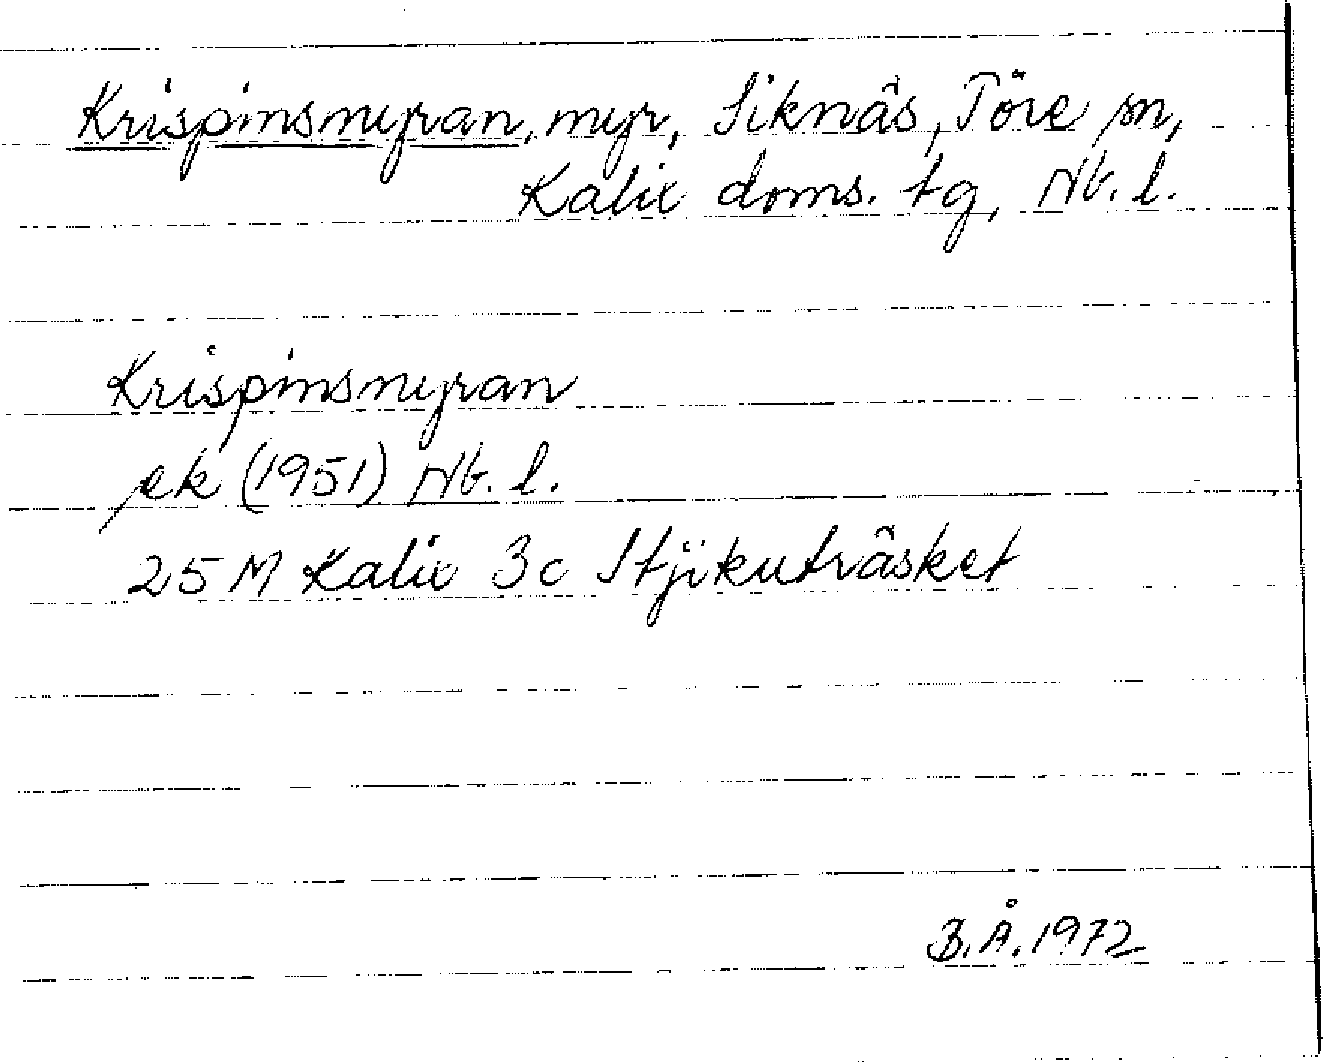 Krispinsmyran, myr, Siknäs, Töre sn,
Kalix doms. tg, Nb. l.
Krispinsmyran
ek (1951) Nb. l.
25 M Kalix 3c Stjikuträsket
B.Å. 1972